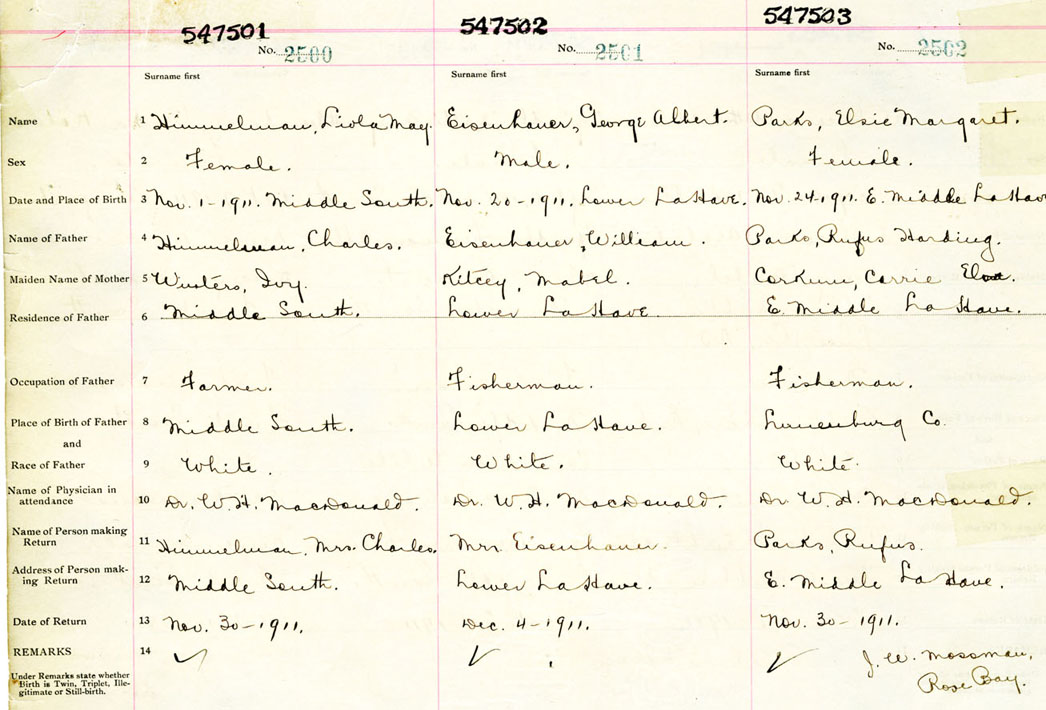 547501 547502 547503
No. 2500 No. 2501 No. 2502
Surname first Surname first Surname first
Name 1 Himmelman, Liola May. Eisenhauer, George Albert. Parks, Elsie Margaret.
Sex 2 Female. Male. Female.
Date and Place of Birth 3 Nov. 1-1911. Middle South. Nov. 20-1911. Lower LaHave. Nov. 24-1911. E. Middle LaHave
Name of Father 4 Himmelman, Charles. Eisenhauer, William. Parks, Rufus Harding.
Maiden Name of Mother 5 Ivy. Kitcey, Mabel. Corkum, Carrie
Residence of Father 6 Middle South. Lower LaHave. E. Middle LaHave.
Occupation of Father 7 Farmer. Fisherman. Fisherman.
Place of Birth of Father 8 Middle South. Lower LaHave. Lunenburg Co.
and
Race of Father 9 White. White. White.
Name of Physician in
attendance 10 Dr. W.H. MacDonald. Dr. W.H. MacDonald. Dr W.H. MacDonald.
Name of Person making
Return 11 Himmelman, Mrs. Charles. Mrs. Eisenhauer. Parks, Rufus.
Address of Person mak-
ing Return 12 Middle South. Lower LaHave. E. Middle LaHave.
Date of Return 13 Nov. 30-1911. Dec. 4-1911. Nov. 30-1911.
REMARKS 14 J. W. Mossman,
Rose Bay.
Under Remarks state whether
Birth is Twin, Triplet, Ille-
gitimate or Still-birth.